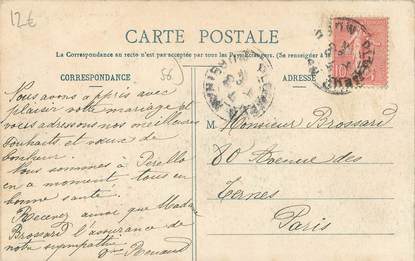 12€
CARTE POSTALE
La Correspondance au recto n'est pas acceptée par tous les Pays Étrangers. (Se renseigner
CORRESPONDANCE
56
ADRESSE
10
Nous avons appris avec
plaisir votre mariage et
vous adressons nos meilleurs
souhaits et vœux de
bonheur.
Nous sommes à Perello
en ce moment tous en
bonne santé.
Recevez ainsi que Madame
Brossard l'assurance de
notre sympathie
Renaud
M. Monsieur Brossard
80 Avenue des
Ternes
Paris